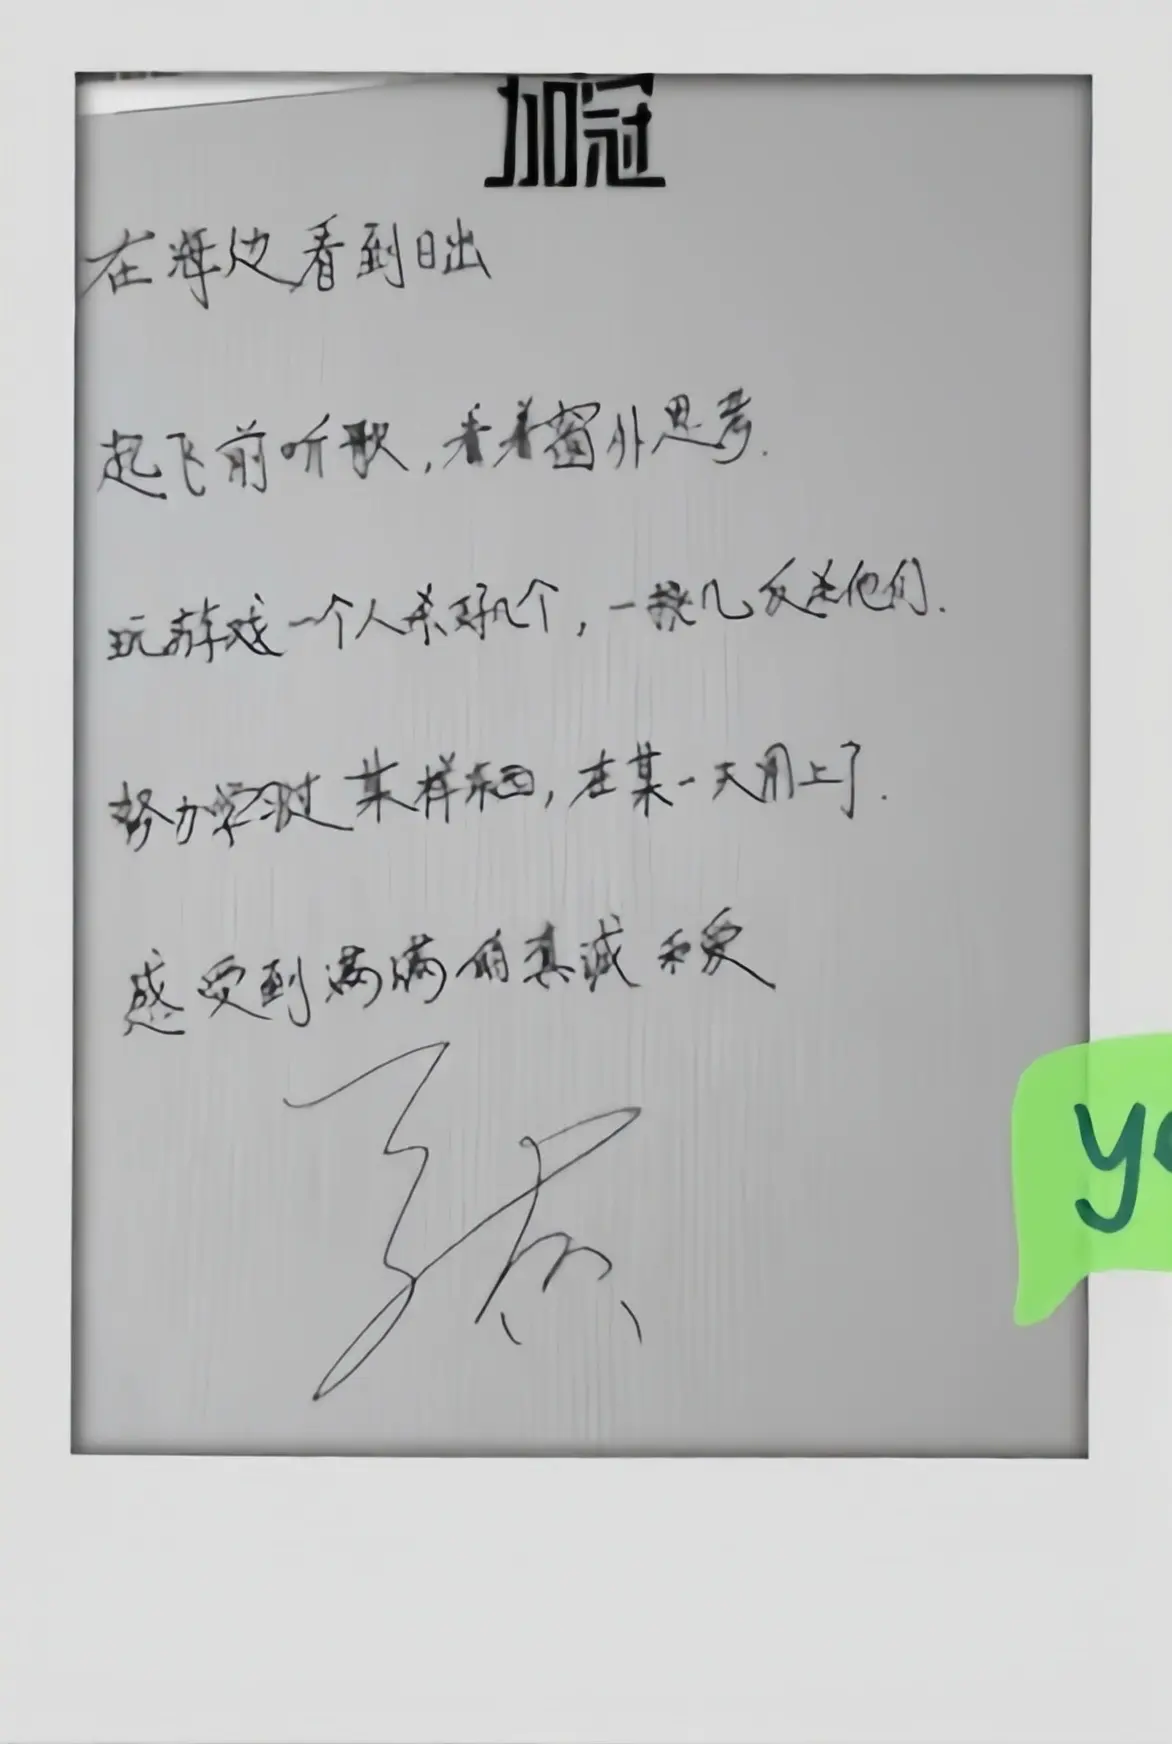 加冠
在海边看到日出
起飞前听歌，看着窗外思考.
玩游戏一个人杀好几个，一挑几反杀他们.
努力学习过某样东西，在某一天用上了.
感受到满满的真诚和爱